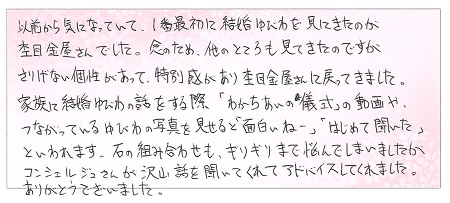 以前から気になっていて、1番最初に結婚ゆびわを見にきたのが
杢目金屋さんでした。念のため、他のところも見てきたのですが
さりげない個性があって、特別感があり杢目金屋さんに戻ってきました。
家族に結婚ゆびわの話をする際「わかちあいの"儀式」の動画や、
つながっているゆびわの写真を見せると「面白いねー」「はじめて聞いた」
といわれます。石の組み合わせも、ギリギリまで悩んでしまいましたが
コンシェルジュさんが沢山話を聞いてくれてアドバイスしてくれました。
ありがとうございました。